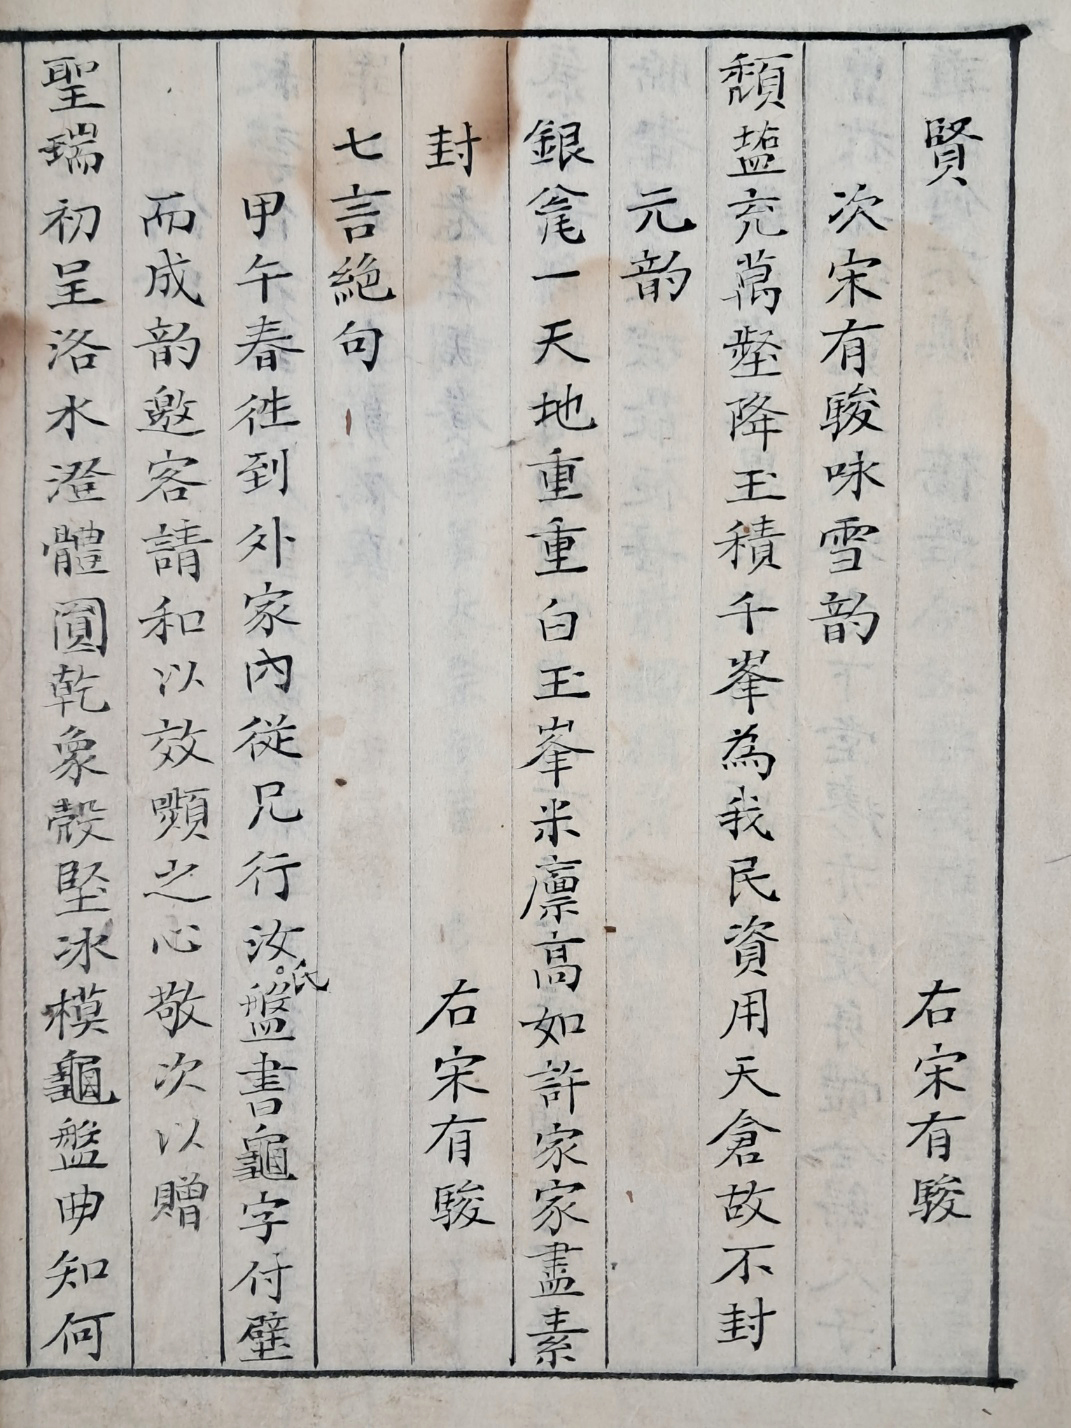 賢　右宋有駿
次宋有駿咏雪韵
頹盐充萬壑降玉積千峯為我民資用天倉故不封
元韵
銀瓮一天地重重白玉峯米廪高如許家家盡素
封　右宋有駿
七言絕句
甲午春徃到外家內從兄行汝氏盤書龜字付壁
而成韵邀客請和以效顰之心敬次以贈
聖瑞初呈洛水澄體圓乾象殼堅冰模龜盤曲知何